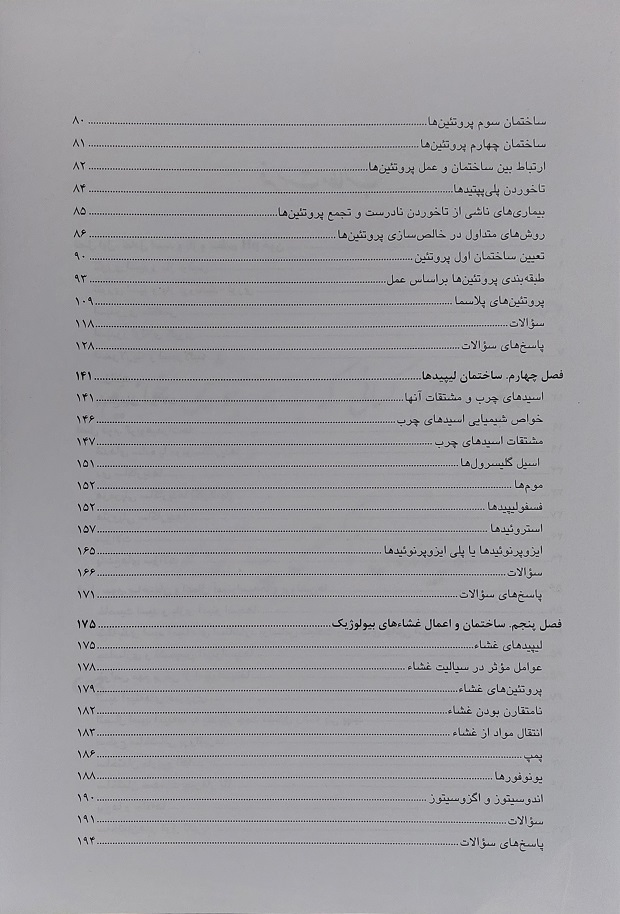 ساختمان سوم پروتئین‌ها ........ ۸۰
ساختمان چهارم پروتئین‌ها ........ ۸۱
ارتباط بین ساختمان و عمل پروتئین‌ها ........ ۸۲
تاخوردن پلی‌پپتیدها ........ ۸۴
بیماری‌های ناشی از تاخوردن نادرست و تجمع پروتئین‌ها ........ ۸۵
روش‌های متداول در خالص‌سازی پروتئین‌ها ........ ۸۶
تعیین ساختمان اول پروتئین ........ ۹۰
طبقه‌بندی پروتئین‌ها براساس عمل ........ ۹۳
پروتئین‌های پلاسما ........ ۱۰۹
سؤالات ........ ۱۱۸
پاسخ‌های سؤالات ........ ۱۲۸
فصل چهارم. ساختمان لیپیدها ........ ۱۴۱
اسیدهای چرب و مشتقات آنها ........ ۱۴۱
خواص شیمیایی اسیدهای چرب ........ ۱۴۶
مشتقات اسیدهای چرب ........ ۱۴۷
اسیل گلیسرول‌ها ........ ۱۵۱
موم‌ها ........ ۱۵۲
فسفولیپیدها ........ ۱۵۲
استروئیدها ........ ۱۵۷
ایزوپرنوئیدها یا پلی ایزوپرنوئیدها ........ ۱۶۵
سؤالات ........ ۱۶۶
پاسخ‌های سؤالات ........ ۱۷۱
فصل پنجم. ساختمان و اعمال غشاءهای بیولوژیک ........ ۱۷۵
لیپیدهای غشاء ........ ۱۷۵
عوامل مؤثر در سیالیت غشاء ........ ۱۷۸
پروتئین‌های غشاء ........ ۱۷۹
نامتقارن بودن غشاء ........ ۱۸۲
انتقال مواد از غشاء ........ ۱۸۳
پمپ ........ ۱۸۶
یونوفورها ........ ۱۸۸
اندوسیتوز و اگزوسیتوز ........ ۱۹۰
سؤالات ........ ۱۹۱
پاسخ‌های سؤالات ........ ۱۹۴